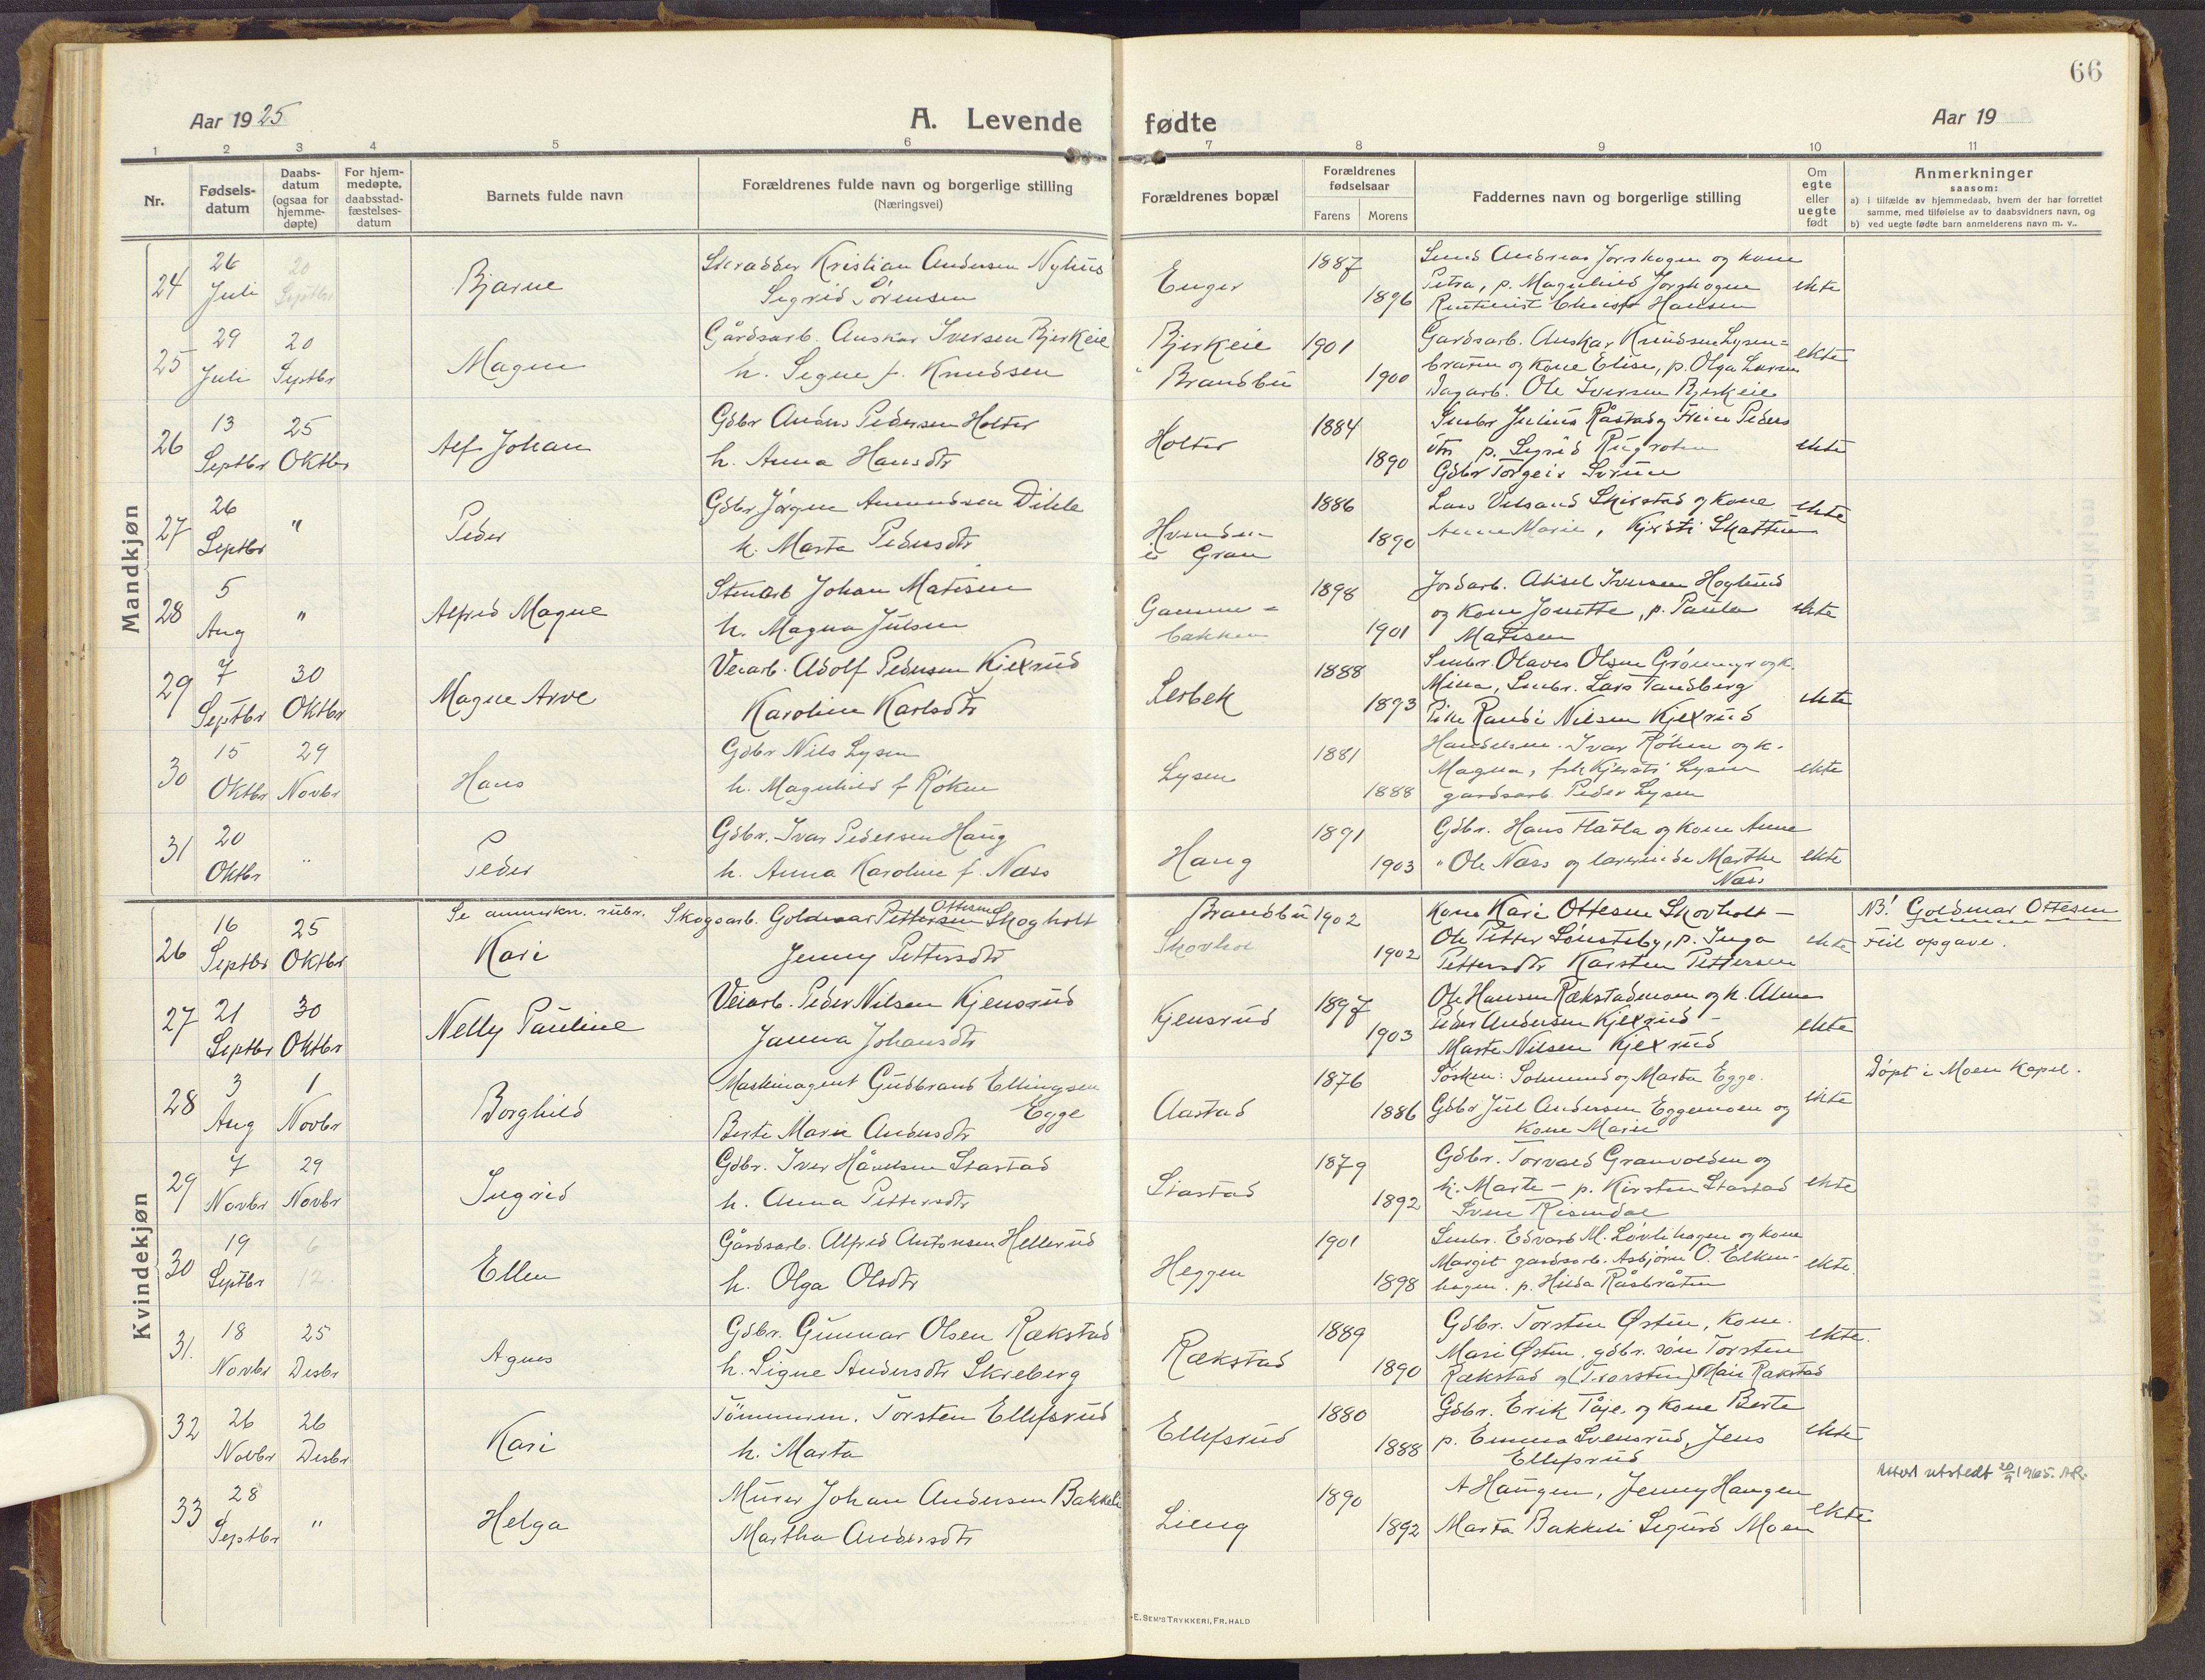 66
Aar 1925
A. Levende fødte
Aar 19
1 2 3 4 5 6 7 8 9 10 11
Nr.
Fødsels-
datum
Daabs-
datum
(ogsaa for
hjemme-
døpte)
For hjem-
medøpte,
daabsstad-
fæstelses-
datum
Barnets fulde navn
Forældrenes fulde navn og borgerlige stilling
(Næringsvei)
Forældrenes bopæl
Forældrenes
fødselsaar
Farens Morens
Faddernes navn og borgerlige stilling
Om
egte
eller
uegte
født
Anmerkninger
saasom:
a) i tilfælde av hjemmedaab, hvem der har forrettet
samme, med tilføielse av to daabsvidners navn, og
b) ved uegte fødte barn anmelderens navn m. v..
Mandkjøn
24 26 Juli 20 Septbr Bjarne
Skradder Kristian Andersen Nyhus
Sigrid Sørensen
Enger 1887 1896
Andreas Jorshagen og kone
Petra, p. Magnhild Jorshagen
Hansen
ekte
25 29 Juli 20 Septbr Magne
Gårdsarb. Anskar Iversen Bjerkeie
h. Signe f. Knudsen
Bjerkeie
Brandbu
1901 1900
Gardsarb. Anskar Knudsen Lysen=
braten og kone Elise, p. Olga Larsen
Dagarb. Ole Iversen Bjerkeie
ekte
26 13 Septbr 25 Oktbr Alf Johan
Gdbr Anders Pedersen Holter
h. Anna Hansdtr
Holter 1884 1890
Smbr Julius Råstad og Peders
dtr, p. Sigrid
Gdbr Torgeir
ekte
27 26 Septbr " Peder
Gdbr Jørgen Amundsen Dihle
h. Marta Pedersdtr
Hvinden
Gran
1886 1890
Lars Velsand Skirstad og kone
Anne Marie, Kjersti Skattum
ekte
28 5 Aug " Alfred Magne
Stenarb Johan Matisen
h. Magna Julsen
Gamme=
bakken
1898 1901
Jordarb. Aksel Iversen Hoglund
og kone Jonette, p. Paula
Matisen
ekte
29 7 Septbr 30 Oktbr Magne Arve
Veiarb. Adolf Pedersen Kjexrud
Karoline Karlsdtr
Lerbek 1888 1893
Smbr. Olaves Olsen Grønmyr og k.
Mina, Smbr. Lars Tandberg
Pike Randi Nilsen Kjexrud
ekte
30 15 Oktbr 29 Novbr Hans
Gdbr Nils Lysen
h. Magnhild f Røken
Lysen 1881 1888
Handelsm. Ivar Røken og k.
Magna, frk Kjersti Lysen
gardsarb. Peder Lysen
ekte
31 20 Oktbr " Peder
Gdbr. Ivar Pedersen Haug
h. Anna Karoline f. Næss
Haug 1891 1903
Gdbr. Hans Flatla og kone Anne
" Ole Næss og lærerinde Marthe
Næss
ekte
Kvindekjøn
26 16 Septbr 25 Oktbr
Se anmerkn. rubr.
Kari
Ottesen
Skogsarb. Goldmar Pettersen Skogholt
Jenny Pettersdtr
Brandbu
Skovhol
1902 1902
Kone Kari Ottesen Skovholt —
Ole Petter Sønsteby, p. Inga
Pettersdtr Karsten Pettersen
ekte
NB! Goldmar Ottesen
Feil opgave.
27 21 Septbr 30 Oktbr Nelly Pauline
Veiarb. Peder Nilsen Kjensrud
Janna Johansdtr
Kjensrud 1897 1903
Ole Hansen Rækstadmoen og k. Alma
Peder Andersen Kjexrud —
Marte Nilsen Kjexrud
ekte
28 3 Aug 1 Novbr Borghild
Maskinagent Gudbrand Ellingsen
Egge
Berte Marie Andersdtr
Aastad 1876 1886
Søsken: Solmund og Marta Egge.
Gdbr Juel Andersen Eggemoen og
kone Marie
ekte
Døpt i Moen Kapel.
29 7 Novbr 29 Novbr Ingrid
Gdbr. Iver Håvelsen Stastad
h. Anna Pettersdtr
Stastad 1879 1892
Gdbr. Torvald Granvolden og
k. Marte — p. Kirsten Stastad
Sven Risendal
ekte
30 19 Septbr 6 12. Ellen
Gårdsarb. Alfred Antonsen Hellerud
h. Olga Olsdtr
Heggen 1901 1898
Smbr. Edvard M. Løvlihagen og kone
Margit gardsarb. Asbjørn O. Elken-
hagen. p. Hilda Råsbråten
ekte.
31. 18 Novbr 25 Desbr Agnes
Gdbr. Gunnar Olsen Rækstad
h. Signe Andersdtr Skreberg
Rækstad 1889 1890
Gdbr. Torsten Østen, kone.
Mari Østen, gdbr. søn Torsten
Rækstad og (Trorsten) Mari Rækstad
ekte.
32 26 Novbr 26 Desbr Kari
Tømmerm. Torsten Ellefsrud
h. Marta
Ellefsrud 1880 1888
Gdbr. Erik Tåje og kone Berte
p. Emma Svensrud, Jens
Ellefsrud
ekte
33 28 Septbr " Helga
Murer Johan Andersen Bakkeli
Martha Andersdtr
Lieng 1890 1892
A Haugen, Jenny Haugen
Marta Bakkeli Sigurd Moen
ekte
Attest utstedt 20/9 1965. AR.
E. SEM'S TRYKKERI, FR. HALD